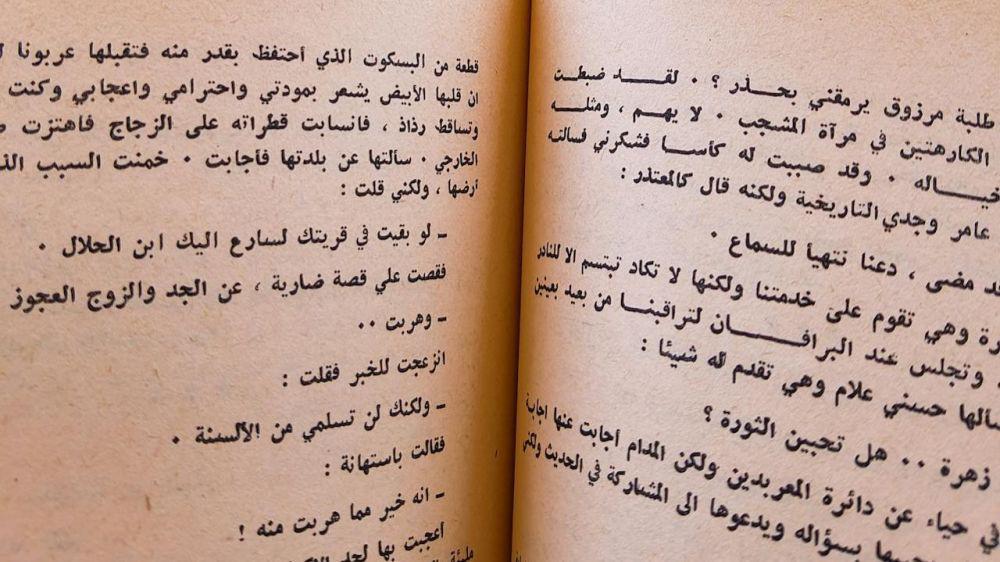 طلبة مرزوق يرمقني بحذر ؟ . لقد ضبطت
الكارهتين في مرآة المشجب . لا يهم ، ومثله
خياله . وقد صببت له كأسا فشكرني فسألته
عامر وجدي التاريخية ولكنه قال كالمعتذر :
مضى ، دعنا نتهيأ للسماع .
وهي تقوم على خدمتنا ولكنها لا تكاد تبتسم الا للنادر
وتجلس عند البرافان لتراقبنا من بعيد بعينين
حسني علام وهي تقدم له شيئا :
زهرة .. هل تحبين الثورة ؟
في حياء عن دائرة المعربدين ولكن المدام أجابت عنها اجابة
بسؤاله ويدعوها الى المشاركة في الحديث ولكني
قطعة من البسكوت الذي أحتفظ بقدر منه فتقبلها عربونا
ان قلبها الأبيض يشعر بمودتي واحترامي واعجابي وكنت
وتساقط رذاذ ، فانسابت قطراته على الزجاج فاهتزت
الخارجي . سألتها عن بلدتها فأجابت . خمنت السبب
أرضها ، ولكني قلت :
ـ لو بقيت في قريتك لسارع اليك ابن الحلال .
فقصت علي قصة ضارية ، عن الجد والزوج العجوز
ـ وهربت ..
انزعجت للخبر فقلت :
ـ ولكنك لن تسلمي من الألسنة .
فقالت باستهانة :
ـ انه خير مما هربت منه !
أعجبت بها لحد